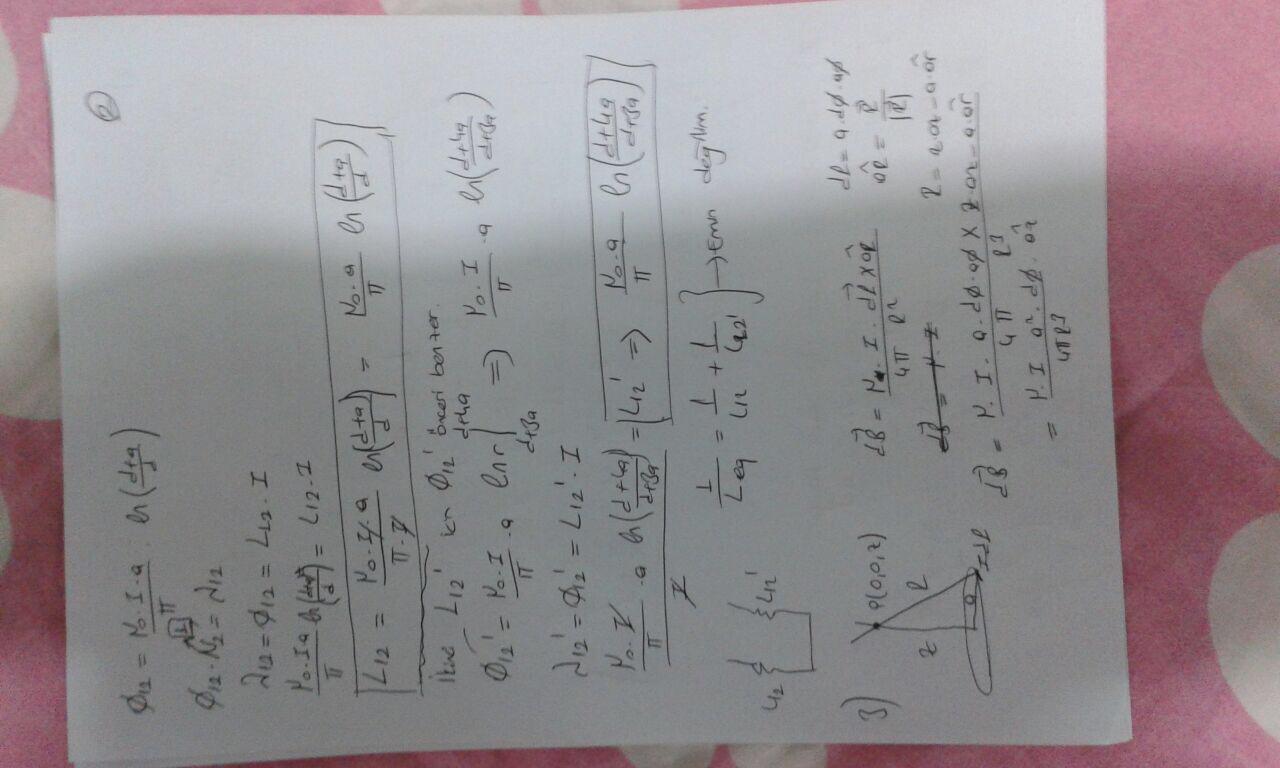 2
Φ₁₂ = μ₀·I·a/π · ln((d+a)/d)
Φ₁₂·N₂ = λ₁₂
1
λ₁₂ = Φ₁₂ = L₁₂·I
μ₀·I·a/π ln((d+a)/d) = L₁₂·I
L₁₂ = μ₀·I·a/π·I ln((d+a)/d) = μ₀·a/π ln((d+a)/d)
L₁₂' için Φ₁₂' önceki benzer.
Φ₁₂' = μ₀·I/π ·a ln r |_{d+3a}^{d+4a} => μ₀·I/π ·a ln((d+4a)/(d+3a))
λ₁₂' = Φ₁₂' = L₁₂'·I
μ₀·I/π ·a ln((d+4a)/(d+3a)) / I = L₁₂' => μ₀·a/π ln((d+4a)/(d+3a))
1/Leq = 1/L₁₂ + 1/L₁₂' } → Emin değilim.
L₁₂ L₁₂'
3)
P(0,0,z)
z R
a Idl
dB = μ₀·I·dl×aR/4π R²
dl = a·dφ·aφ
aR = R/|R|
dB = μ·I
R = z·az - a·ar
dB = μ·I·a·dφ·aφ × z·az - a·ar/4π R³
= μ·I a²·dφ·az/4πR³